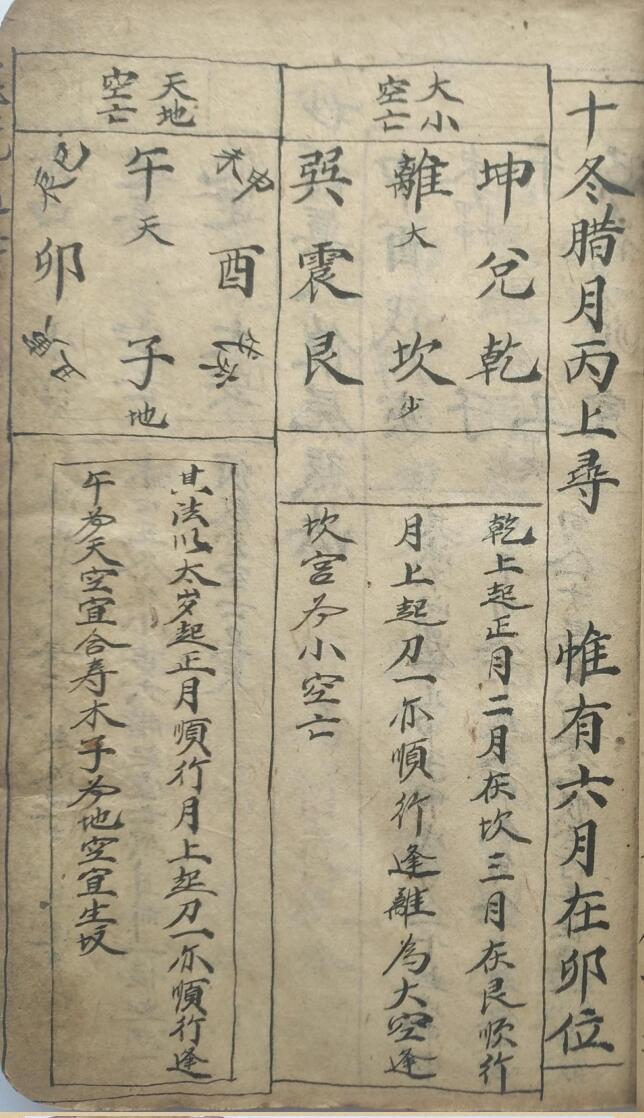 十冬腊月丙上尋 惟有六月在卯位
大小
空亡
坤兌乾
離大坎少
巽震艮
乾上起正月二月在坎三月在艮順行
月上起刀一亦順行逢離為大空逢
坎宮为小空亡
天地
空亡
酉
午天子地
卯
其法以太岁起正月順行月上起刀一亦順行逢
午为天空宜合寿木子为地空宜生坟